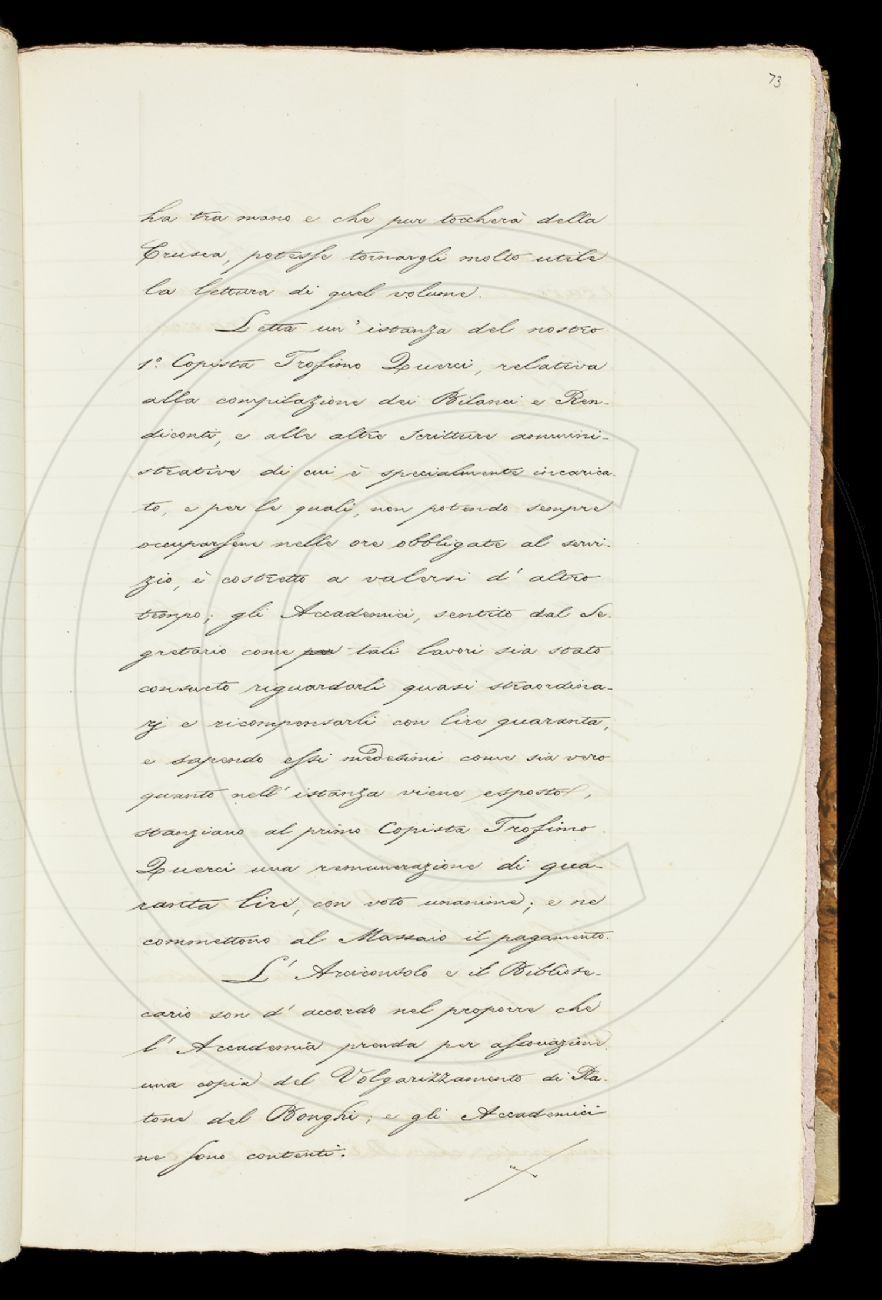 73
ha tra mano e che pur toccherà della
Crusca, potesse tornargli molto utile
la lettura di quel volume.
Letta un' istanza del nostro
1º. Copista Trofimo Querci, relativa
alla compilazione dei Bilanci e Ren-
diconti, e alle altre scritture ammini-
strative di cui è specialmente incarica-
to, e per le quali, non potendo sempre
occuparsene nelle ore obbligate al servi-
zio, è costretto a valersi d' altro
tempo; gli Accademici, sentito dal Se-
gretario come per tali lavori sia stato
consueto riguardarli quasi straordina-
rj e ricompensarli con lire quaranta,
e sapendo essi medesimi come sia vero
quanto nell' istanza viene esposto,
stanziano al primo Copista Trofimo
Querci una remunerazione di qua-
ranta lire, con voto unanime; e ne
commettono al Massaio il pagamento.
L' Arciconsolo e il Bibliote-
cario son d' accordo nel proporre che
l' Accademia prenda per associazione
una copia del Volgarizzamento di Pla-
tone del Bonghi; e gli Accademici
ne sono contenti.